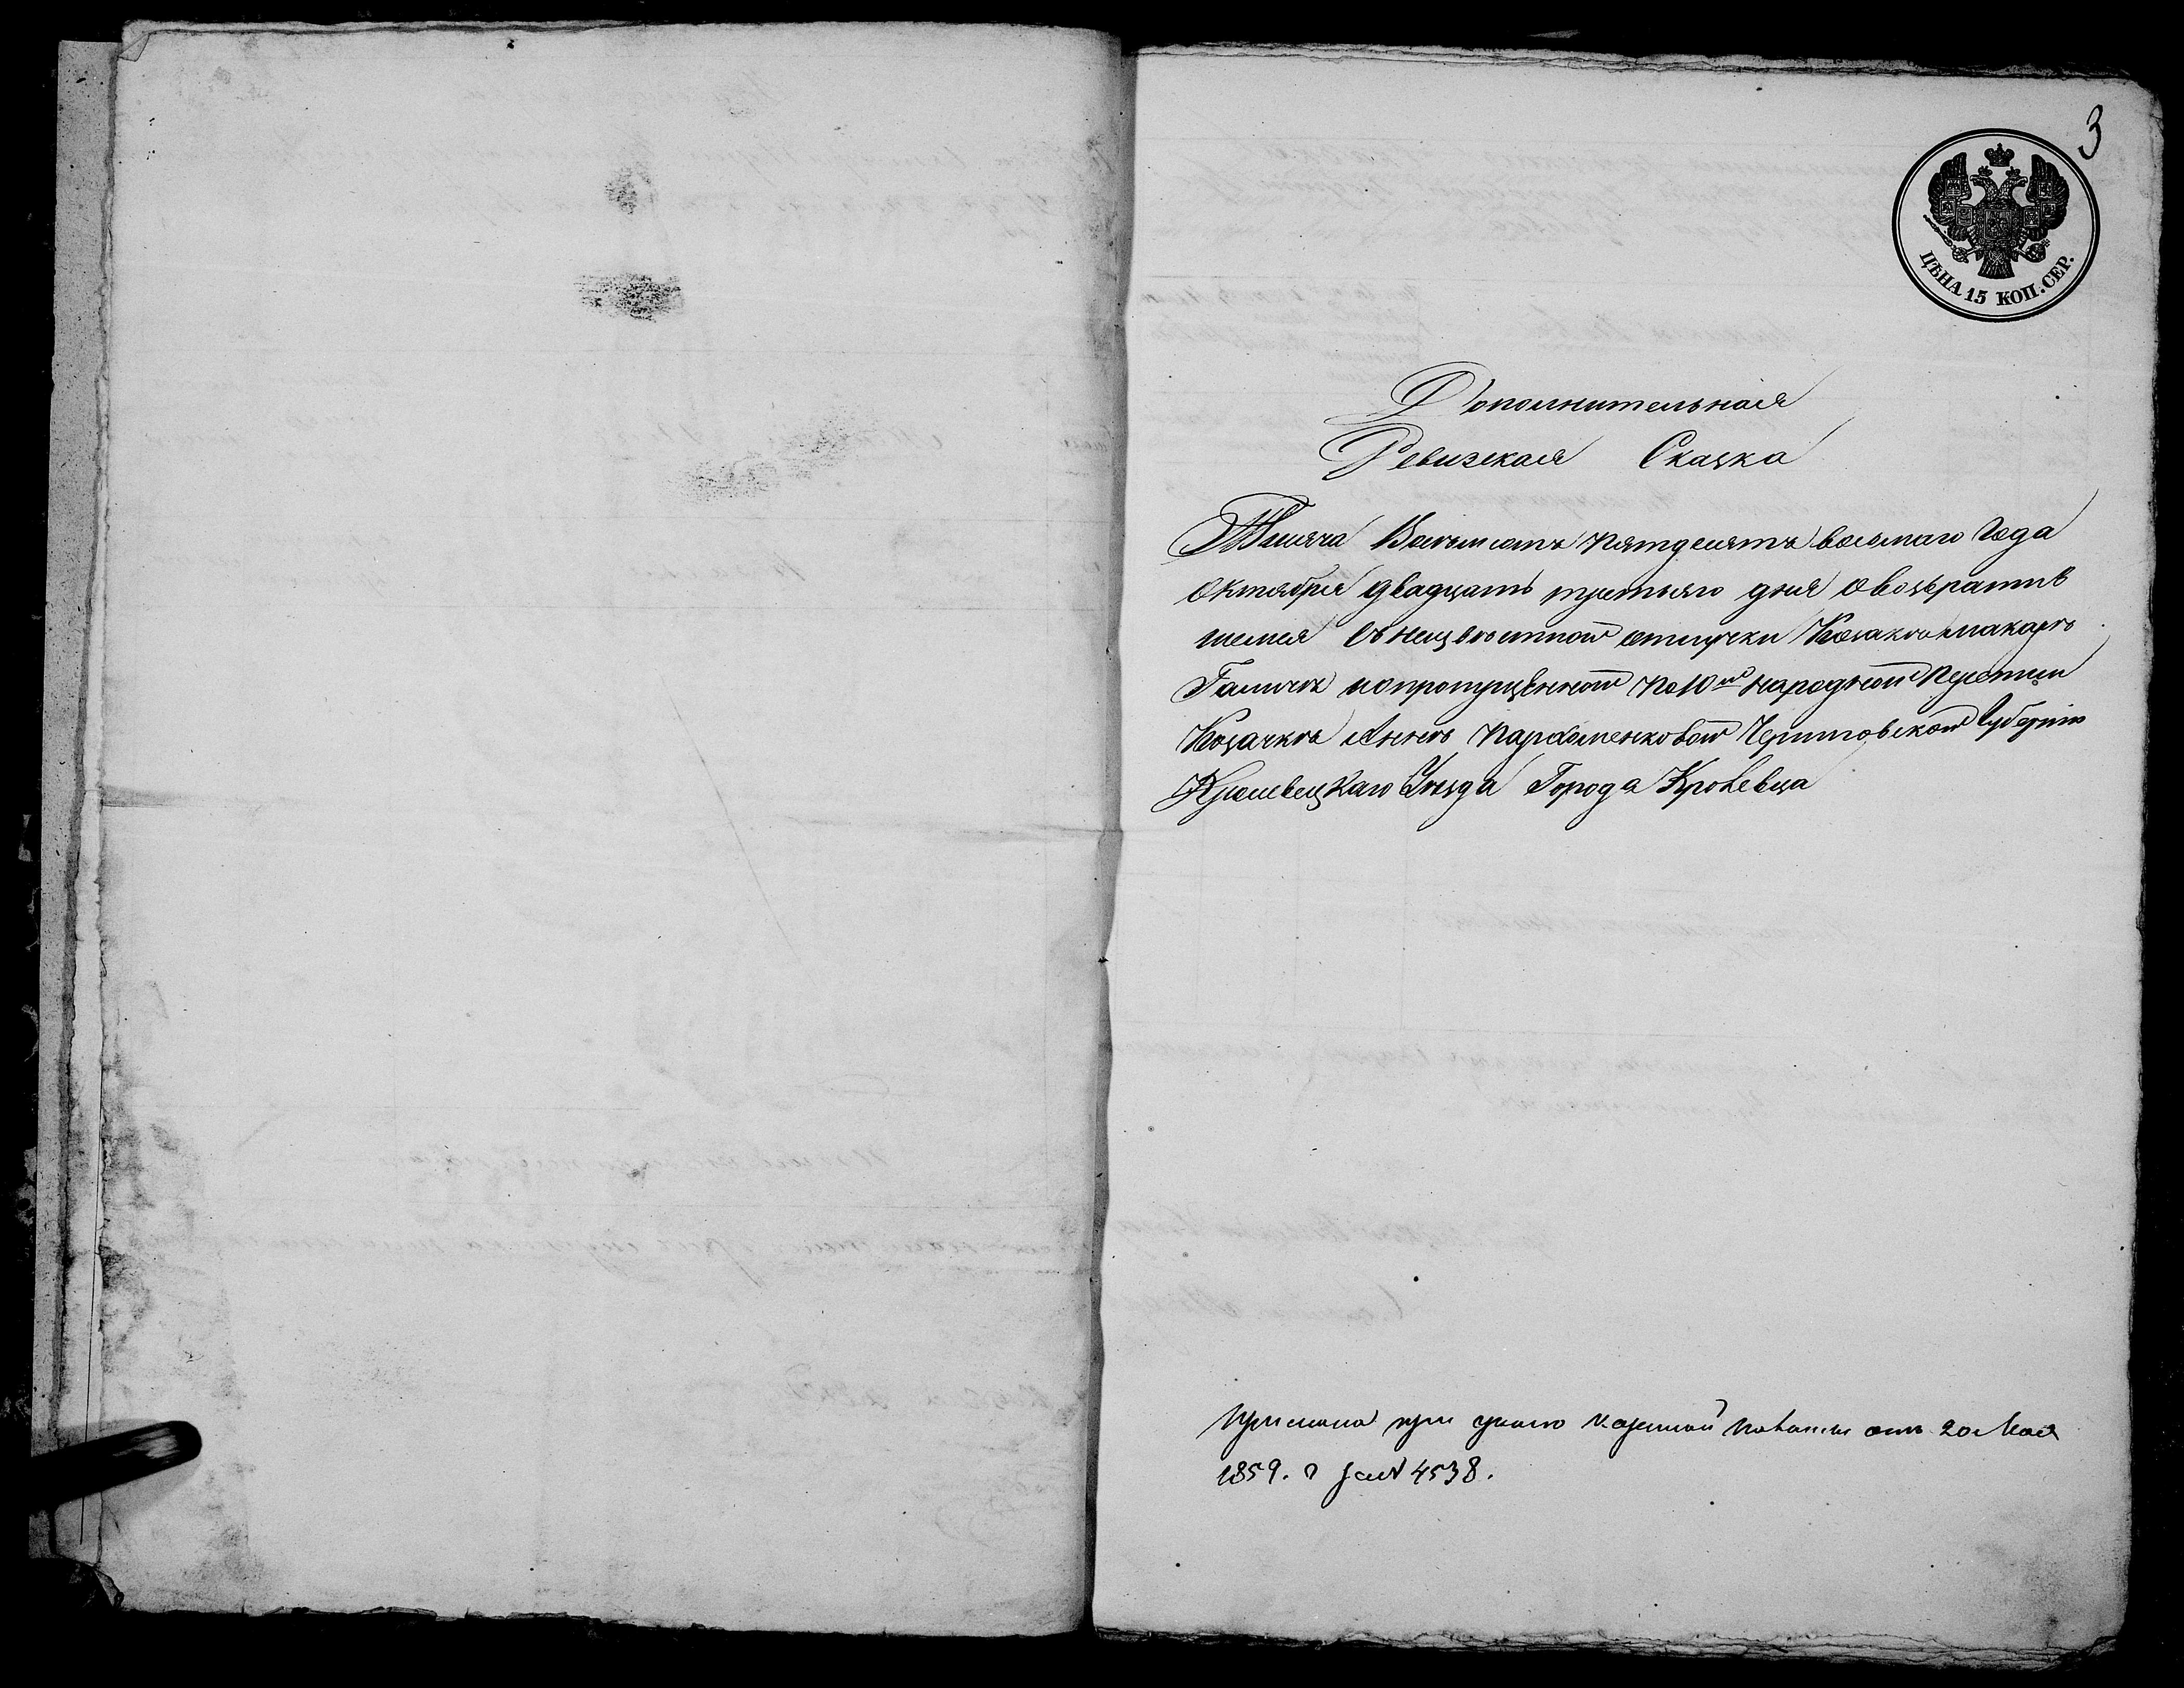 3
ЦѢНА 15 КОП. СЕР.
Дополнительная
Ревизская Сказка
Тысяча Восемьсотъ пятдесятъ восьмаго Года
Октября двадцать третьяго дня о возврати
шемся съ неизвѣстной отлучки Козакѣ Макарѣ
Галичѣ и о пропущенной по 10й народной переписи
Козачкѣ Аннѣ Пархоменковой Черниговской Губерніи
Кролевецкаго Уѣзда Города Кролевца
Прислана при указѣ Казенной Палаты отъ 20 Мая
1859. г за № 4538.